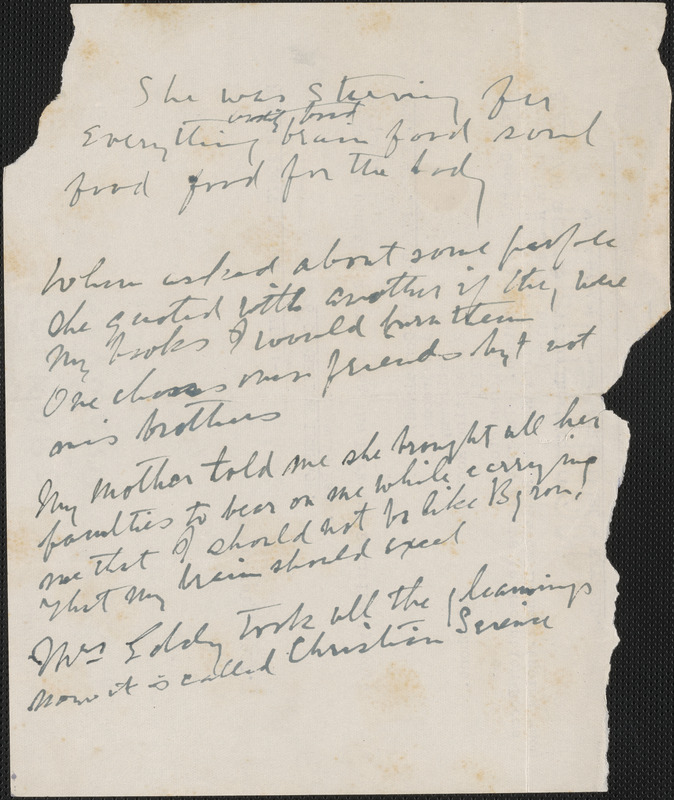 She was starving for
Everything brain food soul
food food for the body
When asked about some people
she quoted with another if they were
My books I would burn them
One chooses ones friends but not
ones brothers
My mother told me she brought all her
faculties to bear on me while carrying
me that I should not be like Byron,
that my brain should excel
Mrs Eddy took all the gleanings
now it is called Christian Science